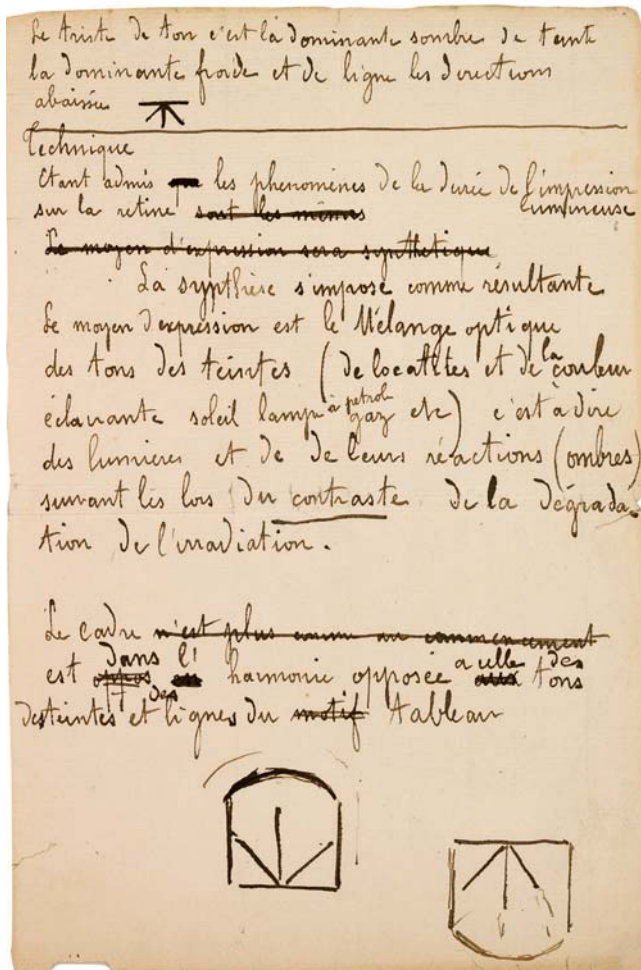 Le triste de ton c'est la dominante sombre de teinte
la dominante froide et de ligne les directions
abaissée
Technique
Etant admis que les phenomènes de la durée de l'impression
lumineuse
sur la retine sont les mêmes
Le moyen d'expression sera synthetique
La synthèse s'impose comme résultante
Le moyen d'expression est le Mélange optique
des tons des teintes (de localités et de la couleur
éclairante soleil lampe à petrole gaz etc) c'est à dire
des lumières et de de leurs réactions (ombres)
suivant les lois du contraste de la dégrada-
tion de l'irradiation.
Le cadre n'est plus comme au commencement
est dans l' harmonie opposée a celle des tons
des teintes et des lignes du motif tableau